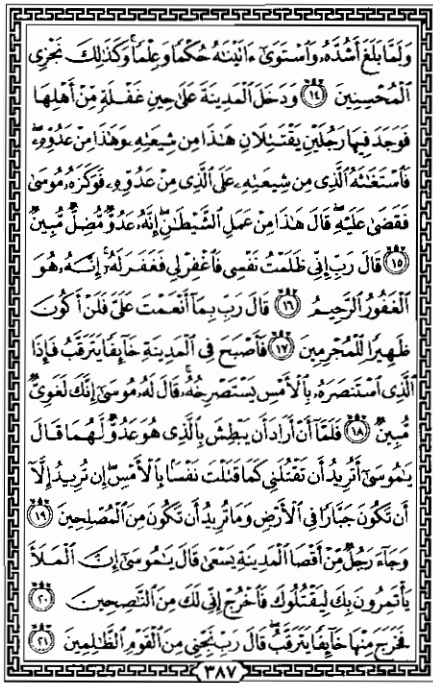 وَلَمَّا بَلَغَ أَشُدَّهُۥ وَٱسْتَوَىٰٓ ءَاتَيْنَٰهُ حُكْمًا وَعِلْمًا ۚ وَكَذَٰلِكَ نَجْزِى
ٱلْمُحْسِنِينَ ١٤ وَدَخَلَ ٱلْمَدِينَةَ عَلَىٰ حِينِ غَفْلَةٍ مِّنْ أَهْلِهَا
فَوَجَدَ فِيهَا رَجُلَيْنِ يَقْتَتِلَانِ هَٰذَا مِن شِيعَتِهِۦ وَهَٰذَا مِنْ عَدُوِّهِۦ ۖ
فَٱسْتَغَٰثَهُ ٱلَّذِى مِن شِيعَتِهِۦ عَلَى ٱلَّذِى مِنْ عَدُوِّهِۦ فَوَكَزَهُۥ مُوسَىٰ
فَقَضَىٰ عَلَيْهِ ۖ قَالَ هَٰذَا مِنْ عَمَلِ ٱلشَّيْطَٰنِ ۖ إِنَّهُۥ عَدُوٌّ مُّضِلٌّ مُّبِينٌ
١٥ قَالَ رَبِّ إِنِّى ظَلَمْتُ نَفْسِى فَٱغْفِرْ لِى فَغَفَرَ لَهُۥٓ ۚ إِنَّهُۥ هُوَ
ٱلْغَفُورُ ٱلرَّحِيمُ ١٦ قَالَ رَبِّ بِمَآ أَنْعَمْتَ عَلَىَّ فَلَنْ أَكُونَ
ظَهِيرًا لِّلْمُجْرِمِينَ ١٧ فَأَصْبَحَ فِى ٱلْمَدِينَةِ خَآئِفًا يَتَرَقَّبُ فَإِذَا
ٱلَّذِى ٱسْتَنصَرَهُۥ بِٱلْأَمْسِ يَسْتَصْرِخُهُۥ ۚ قَالَ لَهُۥ مُوسَىٰٓ إِنَّكَ لَغَوِىٌّ
مُّبِينٌ ١٨ فَلَمَّآ أَنْ أَرَادَ أَن يَبْطِشَ بِٱلَّذِى هُوَ عَدُوٌّ لَّهُمَا قَالَ
يَٰمُوسَىٰٓ أَتُرِيدُ أَن تَقْتُلَنِى كَمَا قَتَلْتَ نَفْسًۢا بِٱلْأَمْسِ ۖ إِن تُرِيدُ إِلَّآ
أَن تَكُونَ جَبَّارًا فِى ٱلْأَرْضِ وَمَا تُرِيدُ أَن تَكُونَ مِنَ ٱلْمُصْلِحِينَ ١٩
وَجَآءَ رَجُلٌ مِّنْ أَقْصَا ٱلْمَدِينَةِ يَسْعَىٰ قَالَ يَٰمُوسَىٰٓ إِنَّ ٱلْمَلَأَ
يَأْتَمِرُونَ بِكَ لِيَقْتُلُوكَ فَٱخْرُجْ إِنِّى لَكَ مِنَ ٱلنَّٰصِحِينَ ٢٠
فَخَرَجَ مِنْهَا خَآئِفًا يَتَرَقَّبُ ۖ قَالَ رَبِّ نَجِّنِى مِنَ ٱلْقَوْمِ ٱلظَّٰلِمِينَ ٢١
٣٨٧